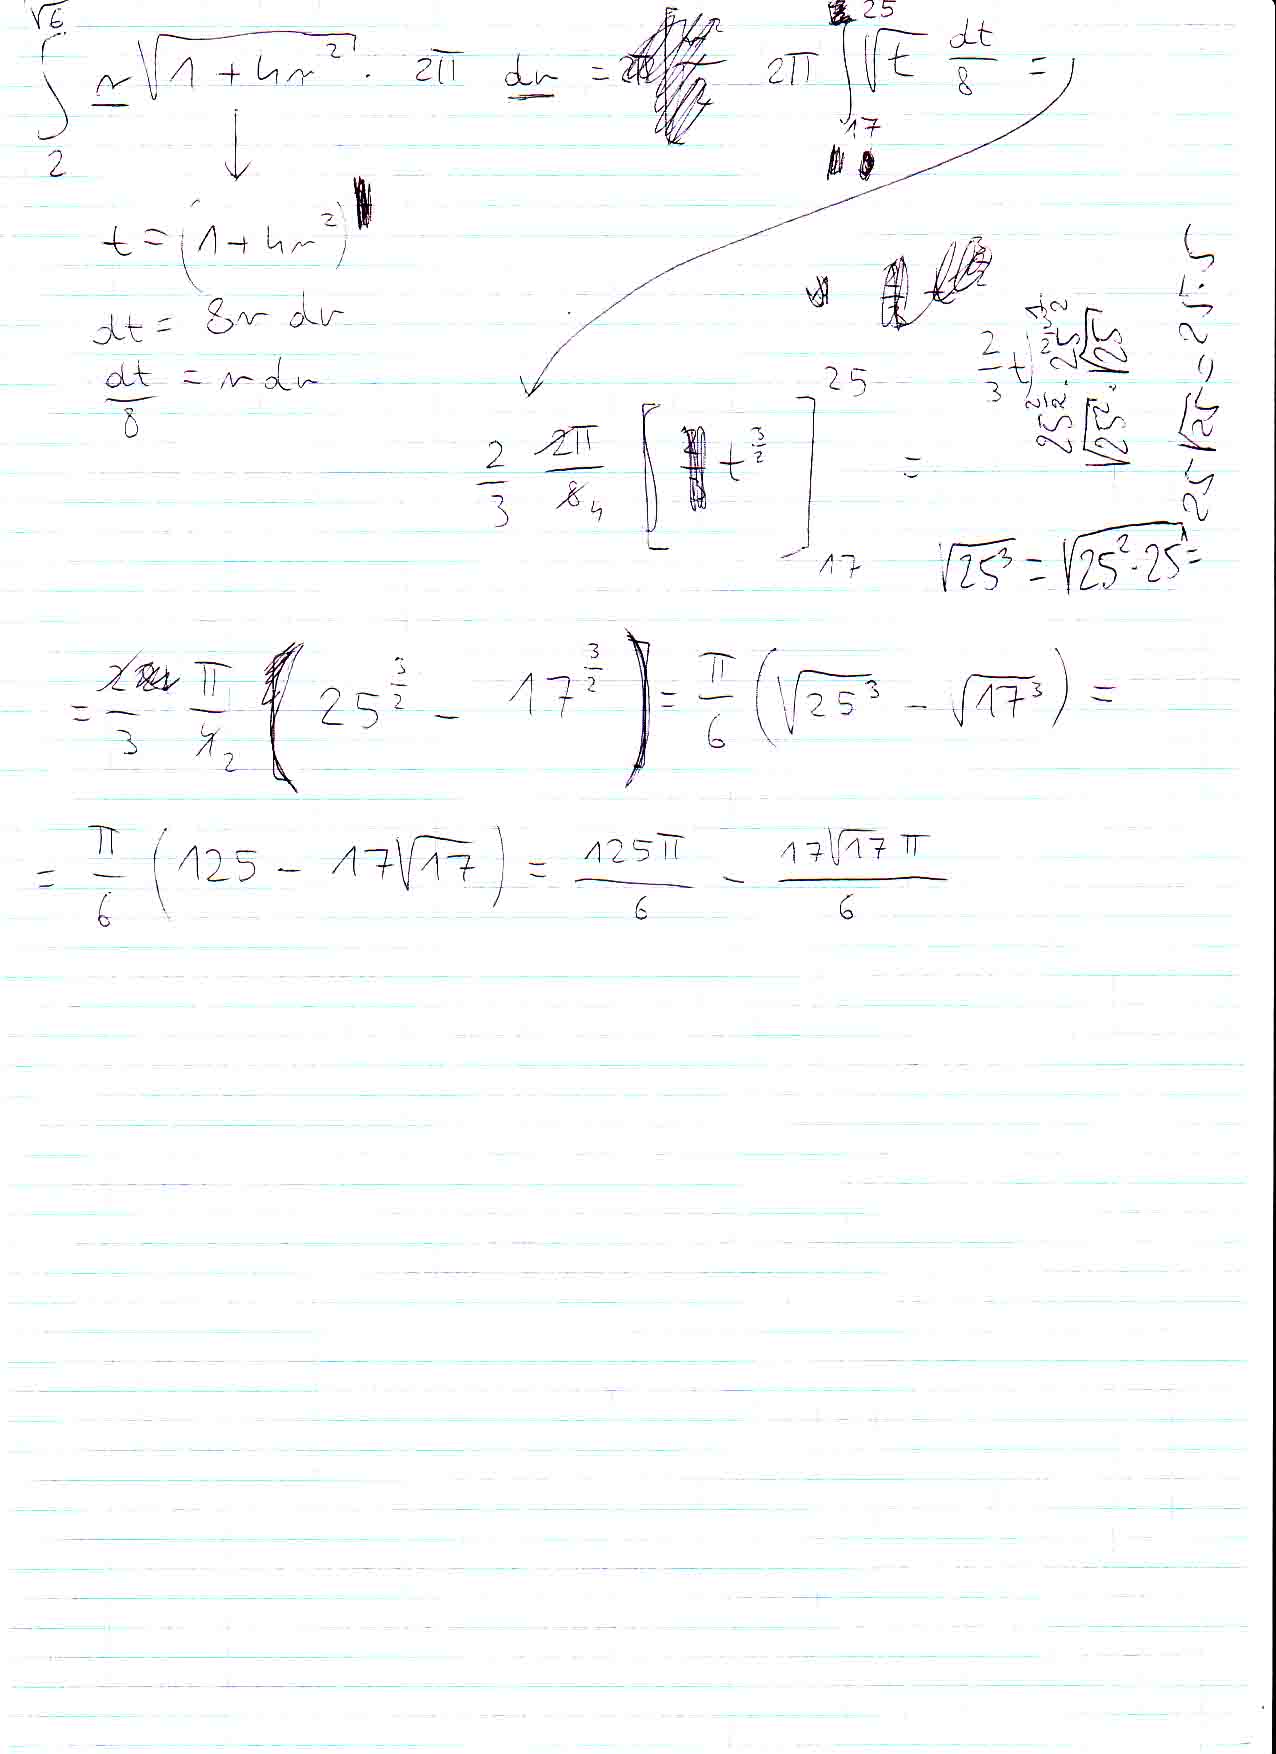 ∫₂^√6 r√(1+4r²) · 2π dr = 2π ∫₁₇^25 √t dt/8 =
t = (1+4r²)
dt = 8r dr
dt/8 = r dr
2/3 2π/8 4 [ t^(3/2) ]₁₇^25 =
2/3 t
25^(2/2) · 25^(1/2)
√25² · √25
25 √25 = 25·5
√25³ = √(25² · 25¹) =
= 2/3 π/4 2 ( 25^(3/2) - 17^(3/2) ) = π/6 (√25³ - √17³) =
= π/6 (125 - 17√17) = 125π/6 - 17√17 π/6